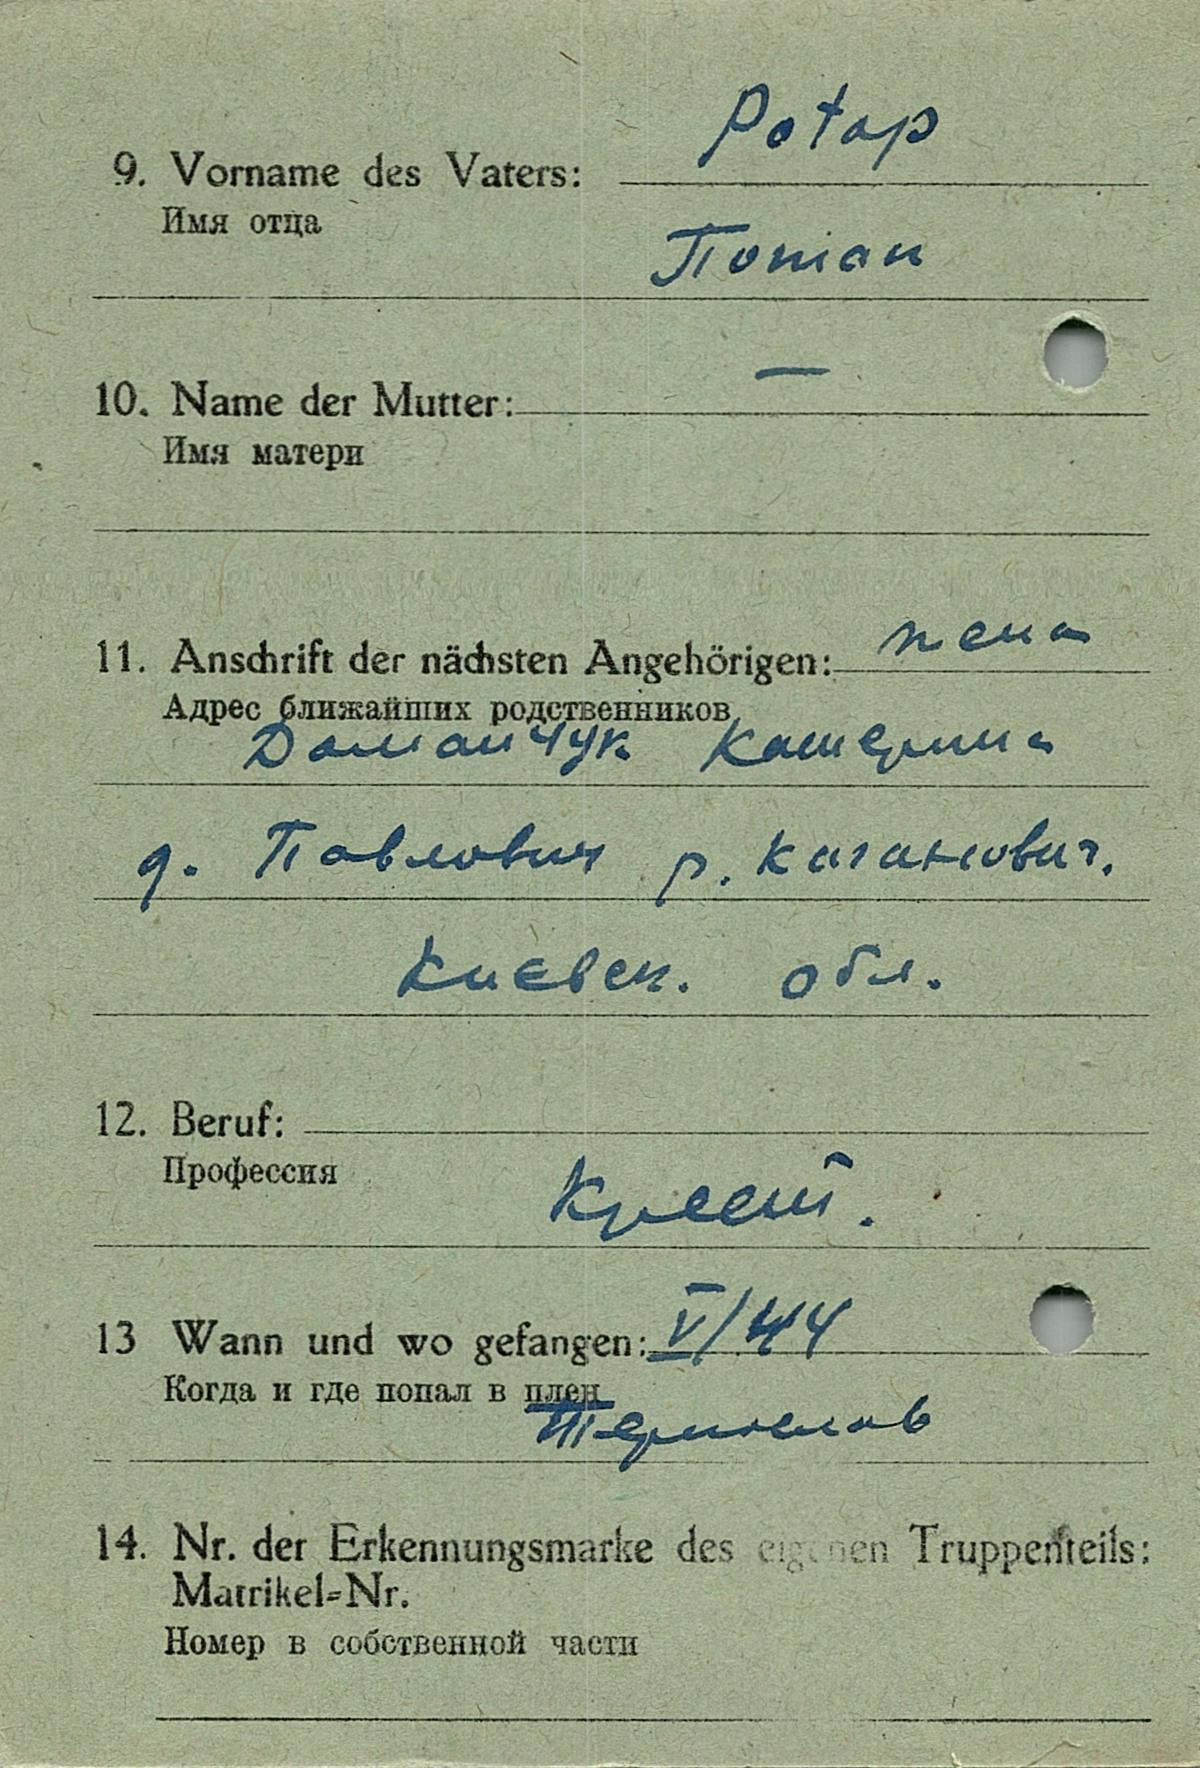 Potap
9. Vorname des Vaters:
Имя отца
Потап
10. Name der Mutter: —
Имя матери
11. Anschrift der nächsten Angehörigen: жена
Адрес ближайших родственников
Доманчук Катерина
д. Павлович р. Каганович.
Киевск. обл.
12. Beruf:
Профессия
Крест.
13 Wann und wo gefangen: V/44
Когда и где попал в плен
14. Nr. der Erkennungsmarke des eigenen Truppenteils:
Matrikel-Nr.
Номер в собственной части